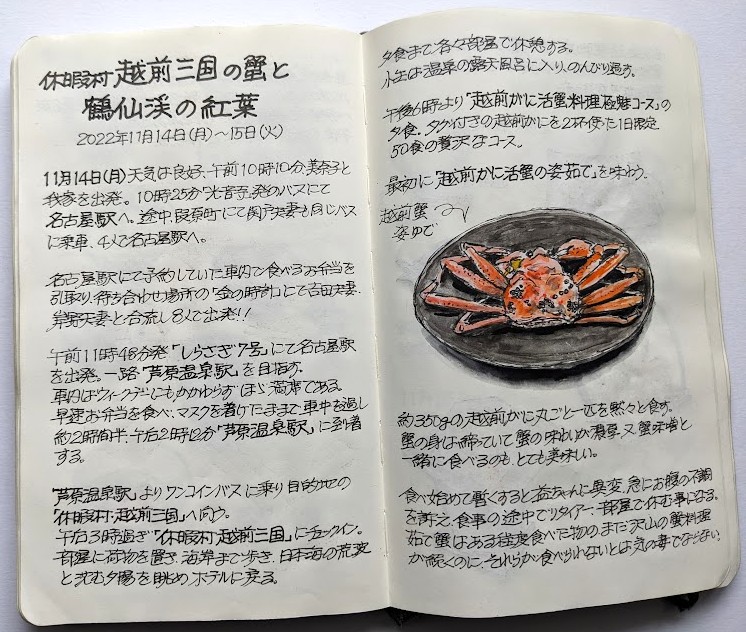 休暇村 越前三国の蟹と
鶴仙渓の紅葉
2022年11月14日(月)〜15日(火)
11月14日(月) 天気は良好、午前10時10分、美奈子と
我家を出発。10時25分「光音寺」発のバスにて
名古屋駅へ。途中、段原町にて関戸夫妻も同じバス
に乗車、4人で名古屋駅へ。
名古屋駅にて予約していた車内で食べるお弁当を
引取り、待ち合わせ場所の「金の時計」にて吉田夫妻、
夫妻と合流し8人で出発!!
午前11時48分発「しらさぎ7号」にて名古屋駅
を出発。一路「芦原温泉駅」を目指す。
車内はウィークデーにもかかわらず ほぼ満席である。
早速お弁当を食べ、マスクを着けたままで車中を過し
約2時間半、午后2時12分「芦原温泉駅」に到着
する。
「芦原温泉駅」よりワンコインバスに乗り目的地の
「休暇村 越前三国」へ向う。
午后3時過ぎ「休暇村 越前三国」にチェックイン。
部屋に荷物を置き、海岸まで歩き、日本海の荒波
と沈む夕陽を眺め、ホテルに戻る。
夕食まで各々部屋で休憩する。
小生は温泉の露天風呂に入り、のんびり過す。
午後6時より「越前がに活蟹料理極魅コース」の
夕食。タグ付きの越前がにを2杯使った1日限定
50食の贅沢なコース。
最初に「越前がに活蟹の姿茹で」を味わう。
越前蟹
姿ゆで
約350gの越前がに丸ごと一匹を黙々と食す。
蟹の身は締っていて蟹の味わいが濃厚、又蟹味噌と
一緒に食べるのも、とても美味しい。
食べ始めて暫くすると益ちゃんに異変、急にお腹の不調
を訴え、食事の途中でリタイアー、部屋で休む事になる。
茹で蟹はある程度食べた物の、まだ沢山の蟹料理
が続くのに、それらが食べられないとは気の毒でならない。